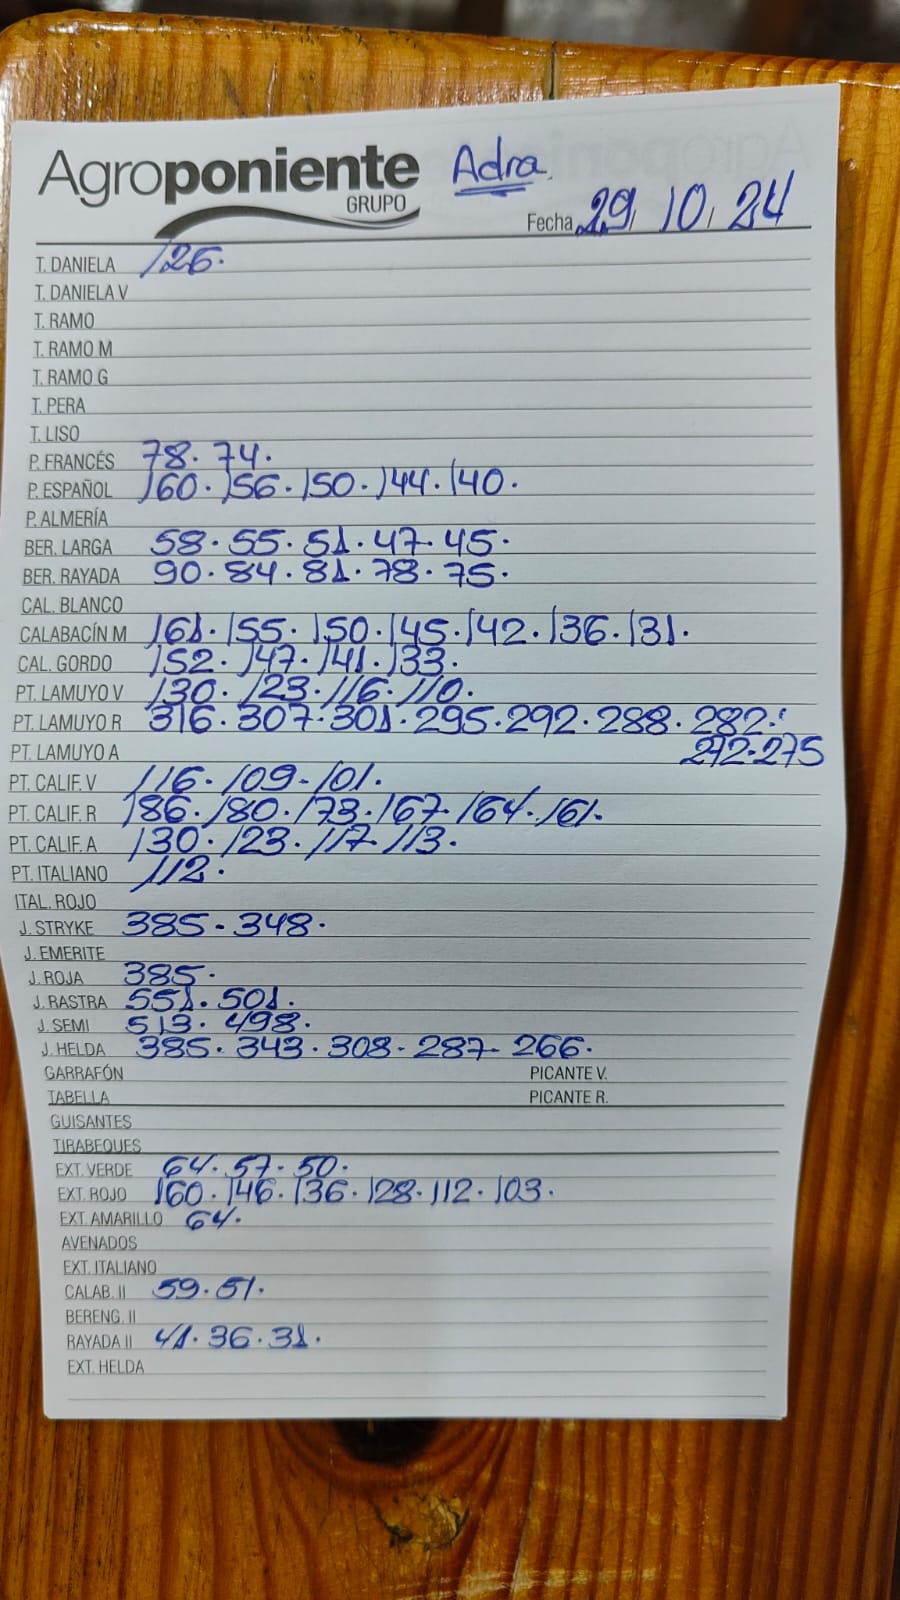 Agroponiente Adra
GRUPO
Fecha 29/10/24
T. DANIELA 126.
T. DANIELA V
T. RAMO
T. RAMO M
T. RAMO G
T. PERA
T. LISO
P. FRANCÉS 78. 74.
P. ESPAÑOL 160. 156. 150. 144. 140.
P. ALMERÍA
BER. LARGA 58. 55. 51. 47. 45.
BER. RAYADA 90. 84. 81. 78. 75.
CAL. BLANCO
CALABACÍN M 161. 155. 150. 145. 142. 136. 131.
CAL. GORDO 152. 147. 141. 133.
PT. LAMUYO V 130. 123. 116. 110.
PT. LAMUYO R 316. 307. 301. 295. 292. 288. 282.
PT. LAMUYO A 272. 275
PT. CALIF. V 116. 109. 101.
PT. CALIF. R 186. 180. 173. 167. 164. 161.
PT. CALIF. A 130. 123. 117. 113.
PT. ITALIANO 112.
ITAL. ROJO
J. STRYKE 385. 348.
J. EMERITE
J. ROJA 385.
J. RASTRA 551. 501.
J. SEMI 513. 498.
J. HELDA 385. 343. 308. 287. 266.
GARRAFÓN PICANTE V.
TABELLA PICANTE R.
GUISANTES
TIRABEQUES
EXT. VERDE 64. 57. 50.
EXT. ROJO 160. 146. 136. 128. 112. 103.
EXT. AMARILLO 64.
AVENADOS
EXT. ITALIANO
CALAB. II 59. 51.
BERENG. II
RAYADA II 41. 36. 31.
EXT. HELDA